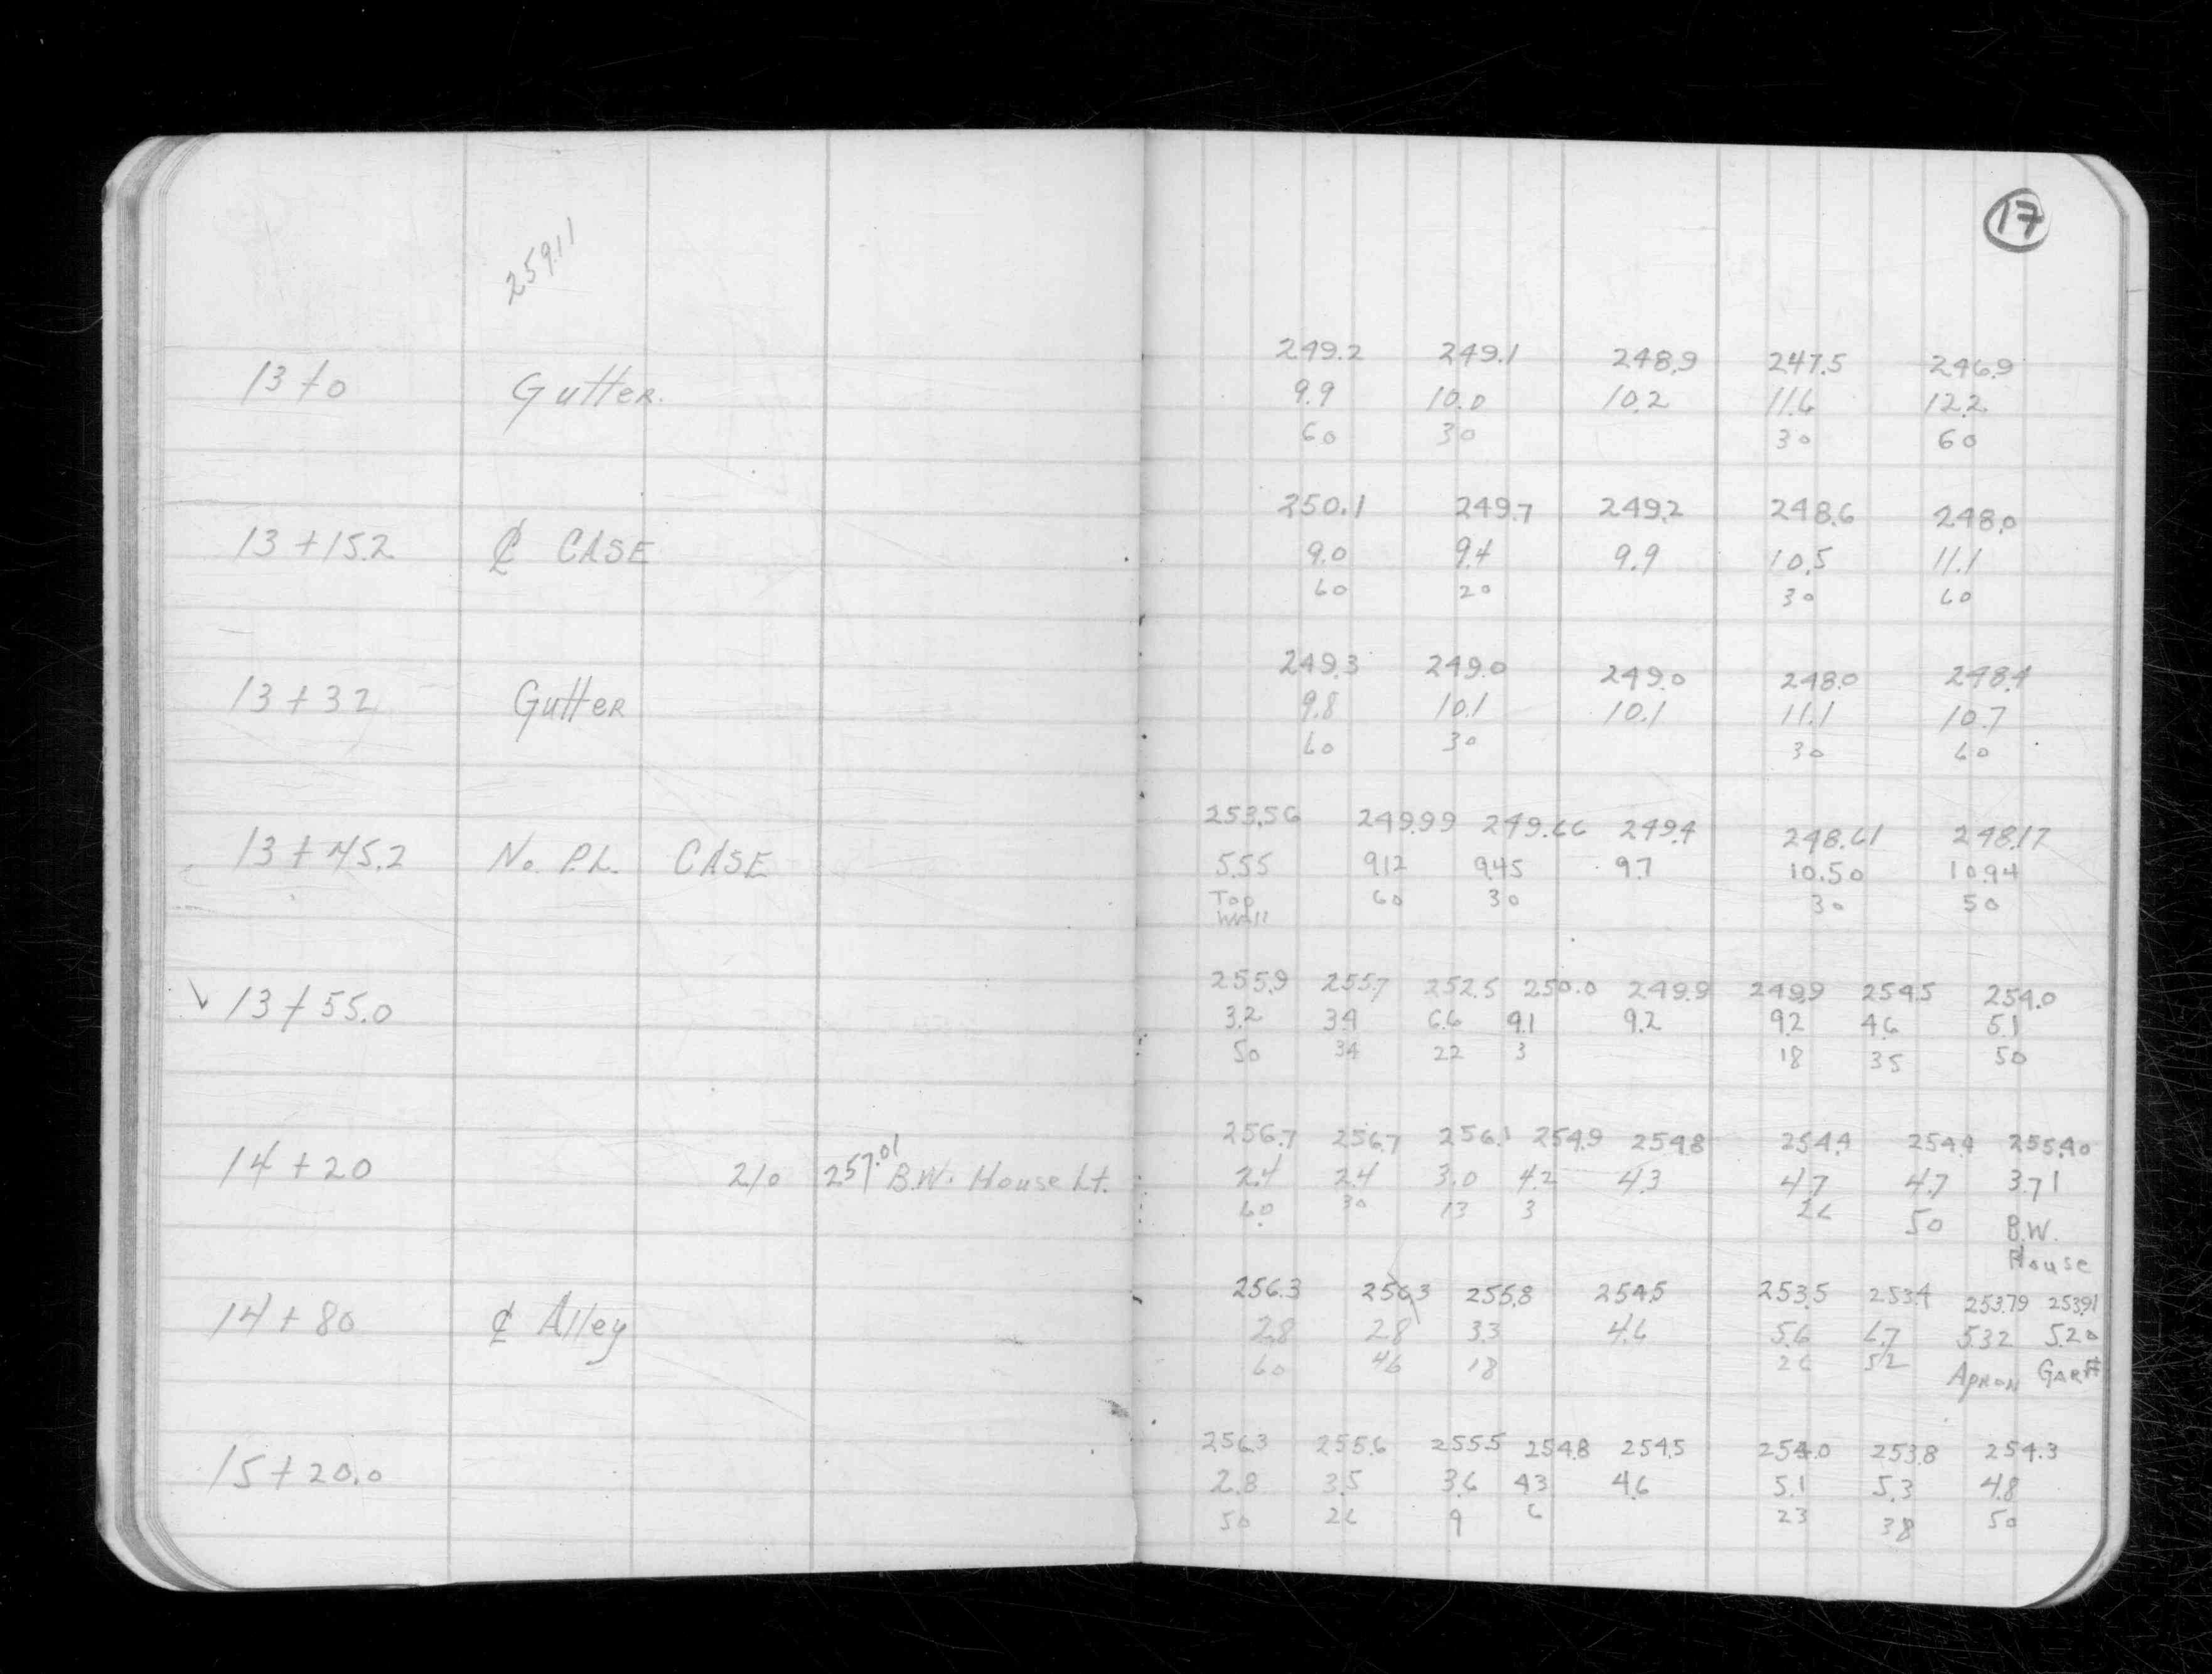 17
259.11
249.2 249.1 248.9 247.5 246.9
13+0 Gutter. 9.9 10.0 10.2 11.6 12.2
60 30 30 60
250.1 249.7 249.2 248.6 248.0
13+15.2 ℄ CASE 9.0 9.4 9.9 10.5 11.1
60 20 30 60
249.3 249.0 249.0 248.0 248.4
13+32 Gutter 9.8 10.1 10.1 11.1 10.7
60 30 30 60
253.56 249.99 249.66 249.4 248.61 248.17
13+45.2 No. P.L. CASE 5.55 9.12 9.45 9.7 10.50 10.94
Top 60 30 30 50
Wall
255.9 255.7 252.5 250.0 249.9 249.9 254.5 254.0
✓ 13+55.0 3.2 3.4 6.6 9.1 9.2 9.2 4.6 5.1
50 34 22 3 18 35 50
256.7 256.7 256.1 254.9 254.8 254.4 254.4 255.40
14+20 210 257.01 B.W. House Lt. 2.4 2.4 3.0 4.2 4.3 4.7 4.7 3.71
60 30 13 3 26 50 B.W.
House
256.3 256.3 255.8 254.5 253.5 253.4 253.79 253.91
14+80 ℄ Alley 2.8 2.8 3.3 4.6 5.6 6.7 5.32 5.20
60 46 18 26 52 Apron
256.3 255.6 255.5 254.8 254.5 254.0 253.8 254.3
15+20.0 2.8 3.5 3.6 4.3 4.6 5.1 5.3 4.8
50 26 9 6 23 38 50